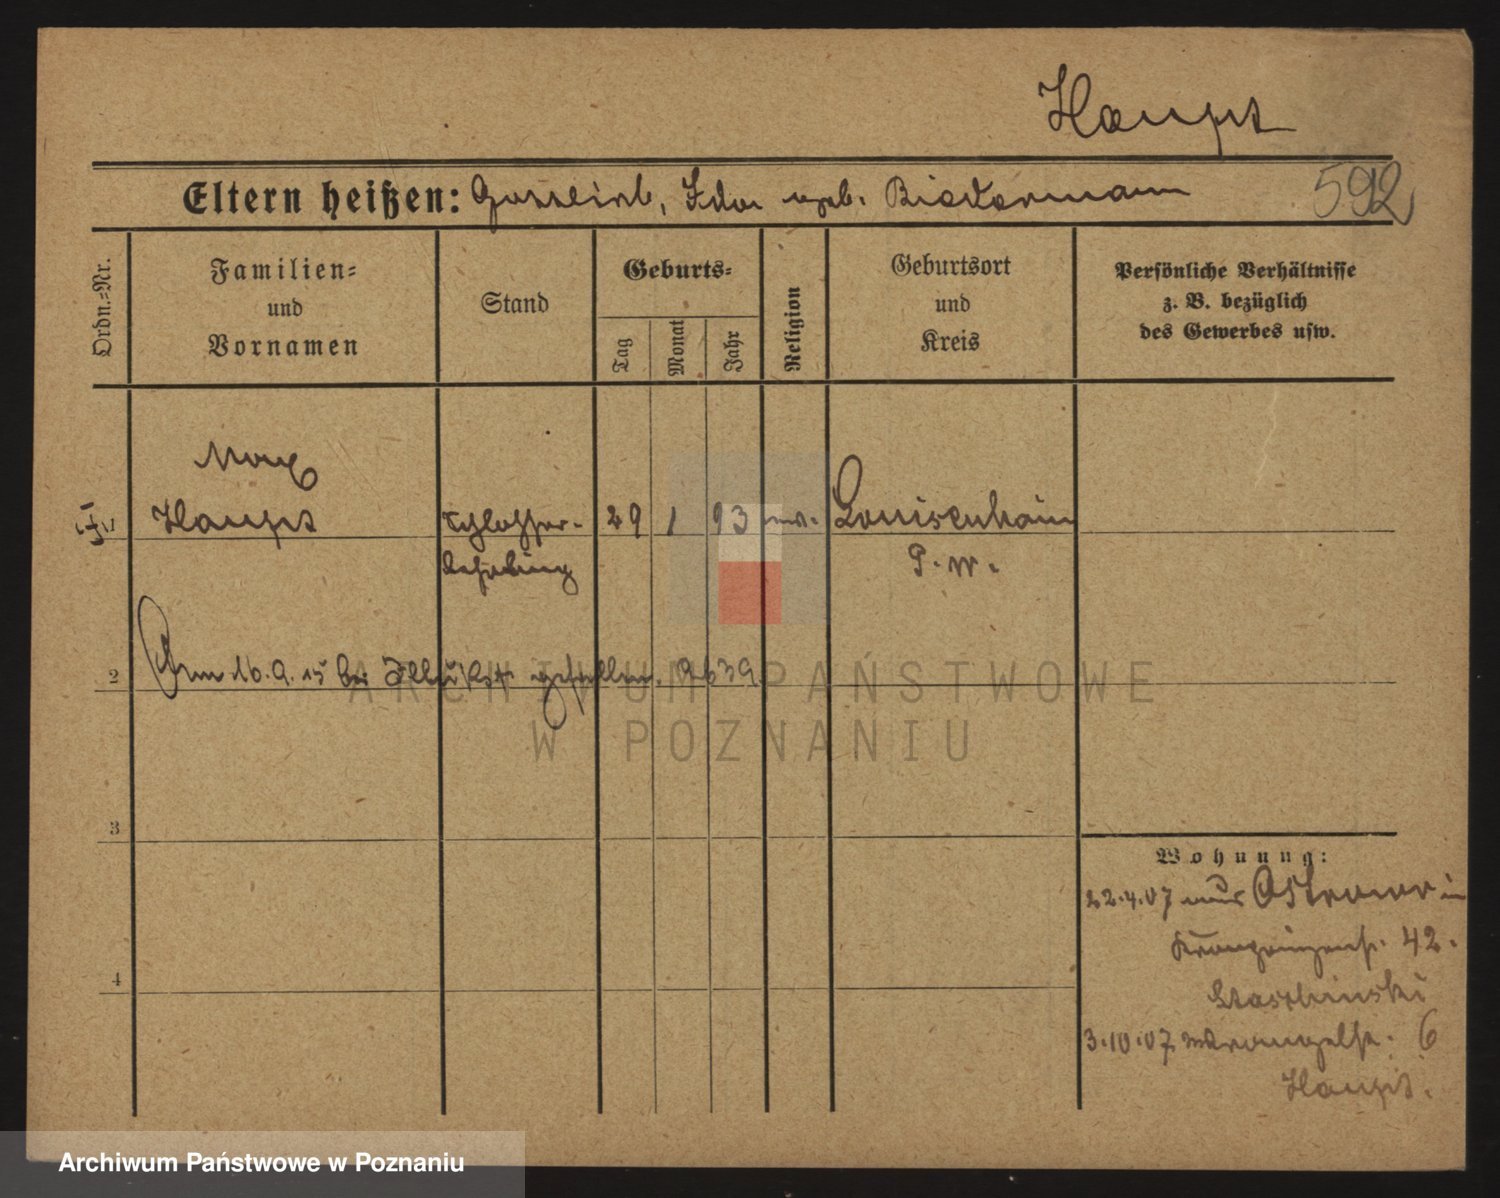 Haupt
Eltern heißen: Gottlieb, Ida geb. Biedermann
592
Ordn.-Nr.
Familien-
und
Vornamen
Stand
Geburts-
Tag
Monat
Jahr
Religion
Geburtsort
und
Kreis
Persönliche Verhältnisse
z. B. bezüglich
des Gewerbes usw.
Max
Haupt
Schlosser-
lehrling
29 1 93
Louisenhain
P. W.
2
Am 16.9.15 bei Illukst gefallen.
3
4
Wohnung:
22.4.07 aus Ostrowo in
Kronprinzenstr. 42.
3.10.07 6
Haupt.
ARCHIWUM PAŃSTWOWE
W POZNANIU
Archiwum Państwowe w Poznaniu